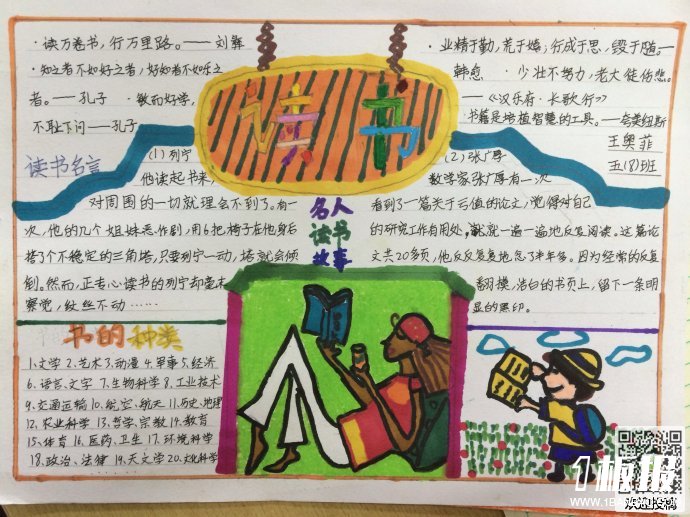 ·读万卷书，行万里路。——刘彝
·知之者不如好之者，好知者不如乐之
者。——孔子 ·敏而好学，
不耻下问——孔子
读书名言
读书
·业精于勤，荒于嬉；行成于思，毁于随—
韩愈 ·少壮不努力，老大徒伤悲。
——《汉乐府·长歌行》
书籍是培植智慧的工具。—夸美纽斯
王奥菲
五(8)班
(1)列宁
他读起书来，
对周围的一切就理会不到了。有一
次，他的几个姐妹恶作剧，用6把椅子在他身后
搭了个不稳定的三角塔，只要列宁一动，塔就会倾
倒。然而，正专心读书的列宁却毫未
察觉，纹丝不动……
名人
读书
故事
(2)张广厚
数学家张广厚有一次
看到了一篇关于亏值的论文，觉得对自己
的研究工作有用处，就一遍一遍地反复阅读。这篇论
文共20多页，他反反复复地念了半年多。因为经常的反复
翻摸，洁白的书页上，留下一条明
显的黑印。
书的种类
1.文学 2.艺术 3.动漫 4.军事 5.经济
6.语言、文字 7.生物科学 8.工业技术
9.交通运输 10.航空、航天 11.历史、地理
12.农业科学 13.哲学、宗教 14.教育
15.体育 16.医药、卫生 17.环境科学
18.政治、法律 19.天文学 20.文化科学
……
1板报
WWW.1BANBAO.COM
欢迎投稿